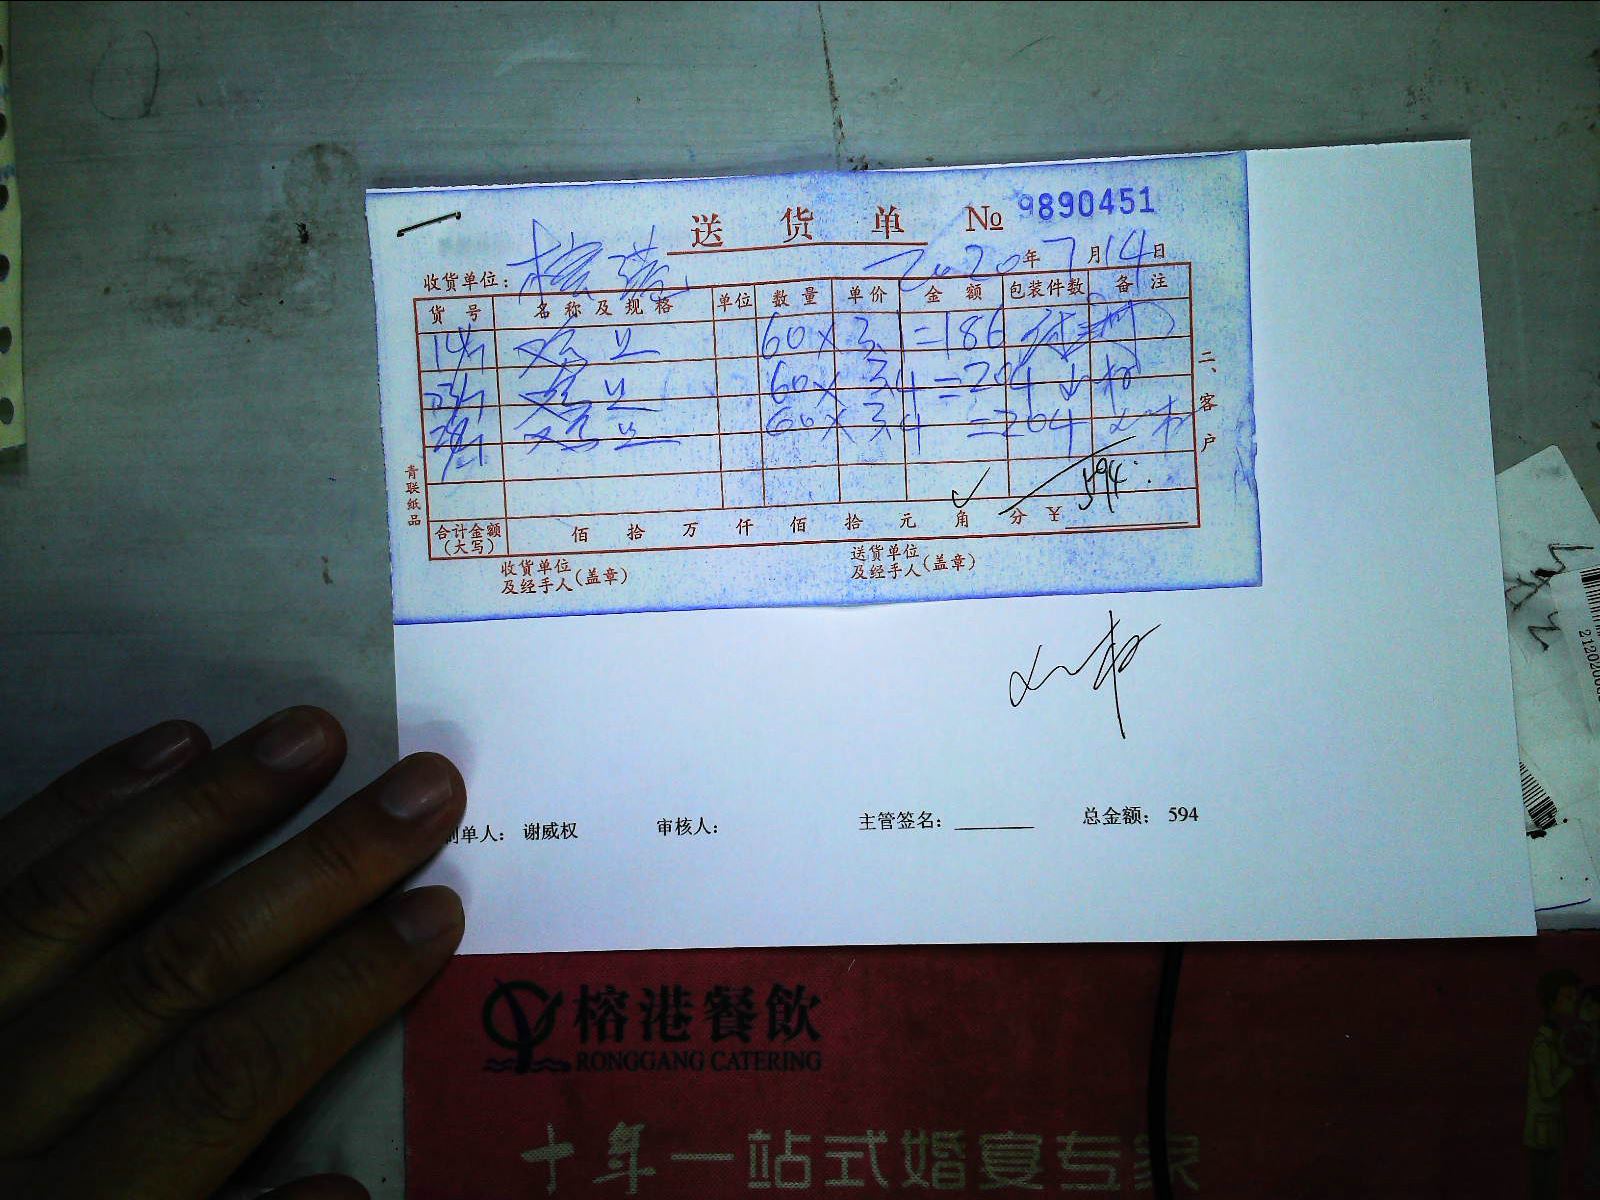 送货单 № 9890451
收货单位：榕港 2020年7月14日
货号 名称及规格 单位 数量 单价 金额 包装件数 备注
14/7 60×3.1=186
60×3.4=204
60×3.4=204
594
合计金额（大写） 佰 拾 万 仟 佰 拾 元 角 分 ¥
收货单位及经手人（盖章）
送货单位及经手人（盖章）
二、客户
青联纸品
制单人： 谢威权 审核人： 主管签名： 总金额： 594
榕港餐飲
RONGGANG CATERING
十年一站式婚宴专家